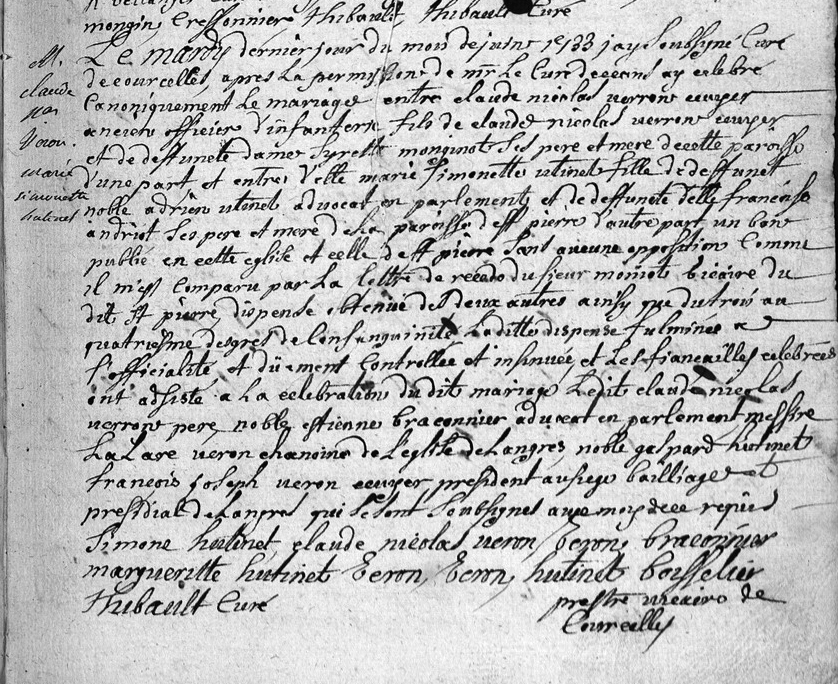 mongin Cressonnier Thibault Thibault Curé
M.
claude
nas
veron.
marie
simonette
hutinet
Le mardy dernier jour du mois de juine 1733 jay soubsyné Curé
de courcelles apres la permissione de mr. Le Curé de ceans ay celebré
Canoniquement Le mariage entre claude nicolas verron ecuyer
ancien officier d'infanterie fils de claude nicolas verron ecuyer
et de deffuncte dame Pyrette monginot ses pere et mere de cette paroisse
d'une part et entre Delle marie Simonette utinet fille de deffunct
noble adrien utinet advocat en parlement et de deffuncte delle francoise
andriot ses pere et mere de la paroisse de st pierre d'autre part un bans
publié en cette eglise et celle de st pierre sans aucune opposition Comme
il m'est Comparu par La lettre de recedo du sieur moinot vicaire du
dit st pierre dispense obtenue des deux autres ainsy que du trois au
quatriesme desgres de Consanguinité Laditte dispense fulminée a
l'officialité et düement Controllée et insinuée, et Les fiancailles celebrées
ont adsisté a La celebration du dit mariage Ledit claude nicolas
verron pere, noble estienne braconnier advocat en parlement messire
Lazare veron chanoine de L'eglise de Langres, noble gaspard hutinet
françois joseph veron ecuyer president au siege bailliage et
presidial de Langres qui se sont soubsignes avec moy de ce requis
Simone hutinet claude nicolas veron veron, braconnier
margueritte hutinet veron, veron, hutinet boisselier
Thibault Curé
prestre vicaire de
Courcelles